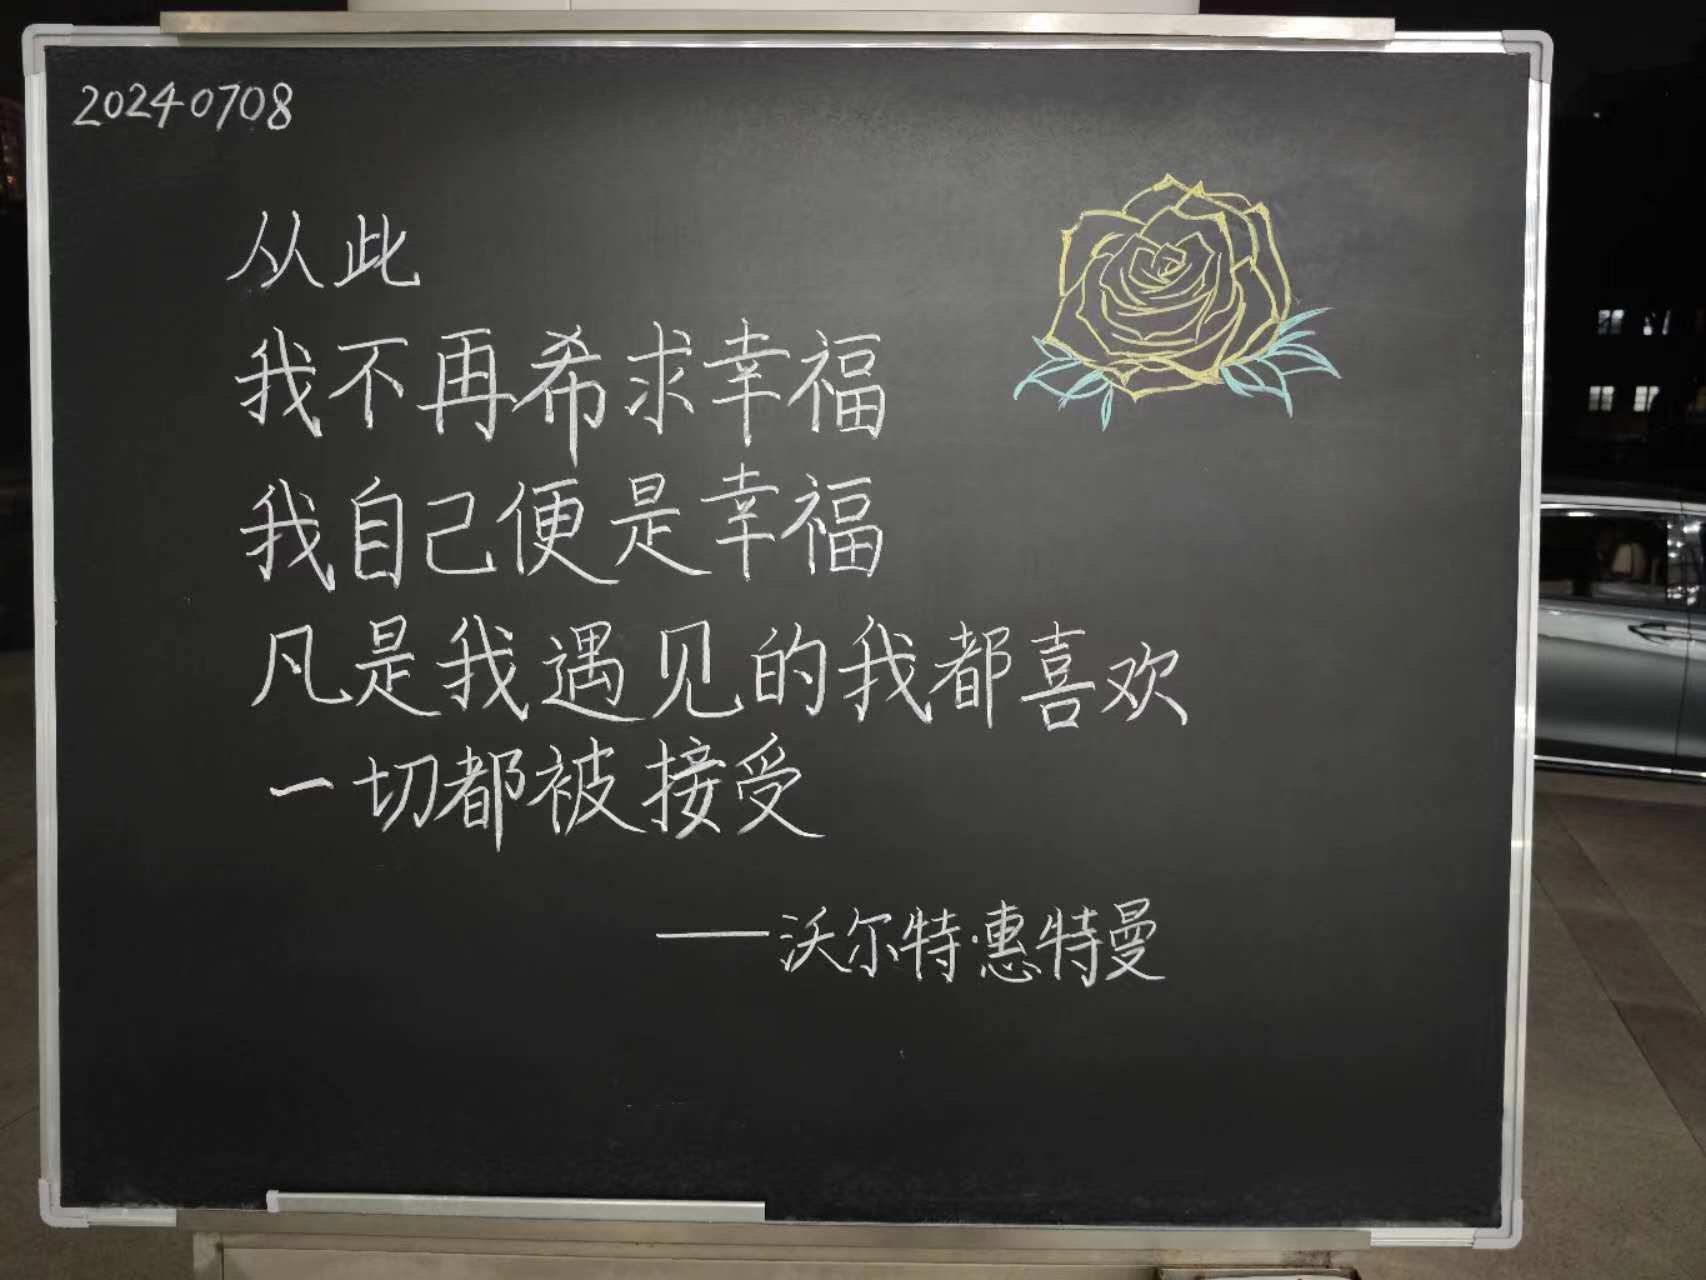 20240708
从此
我不再希求幸福
我自己便是幸福
凡是我遇见的我都喜欢
一切都被接受
——沃尔特·惠特曼